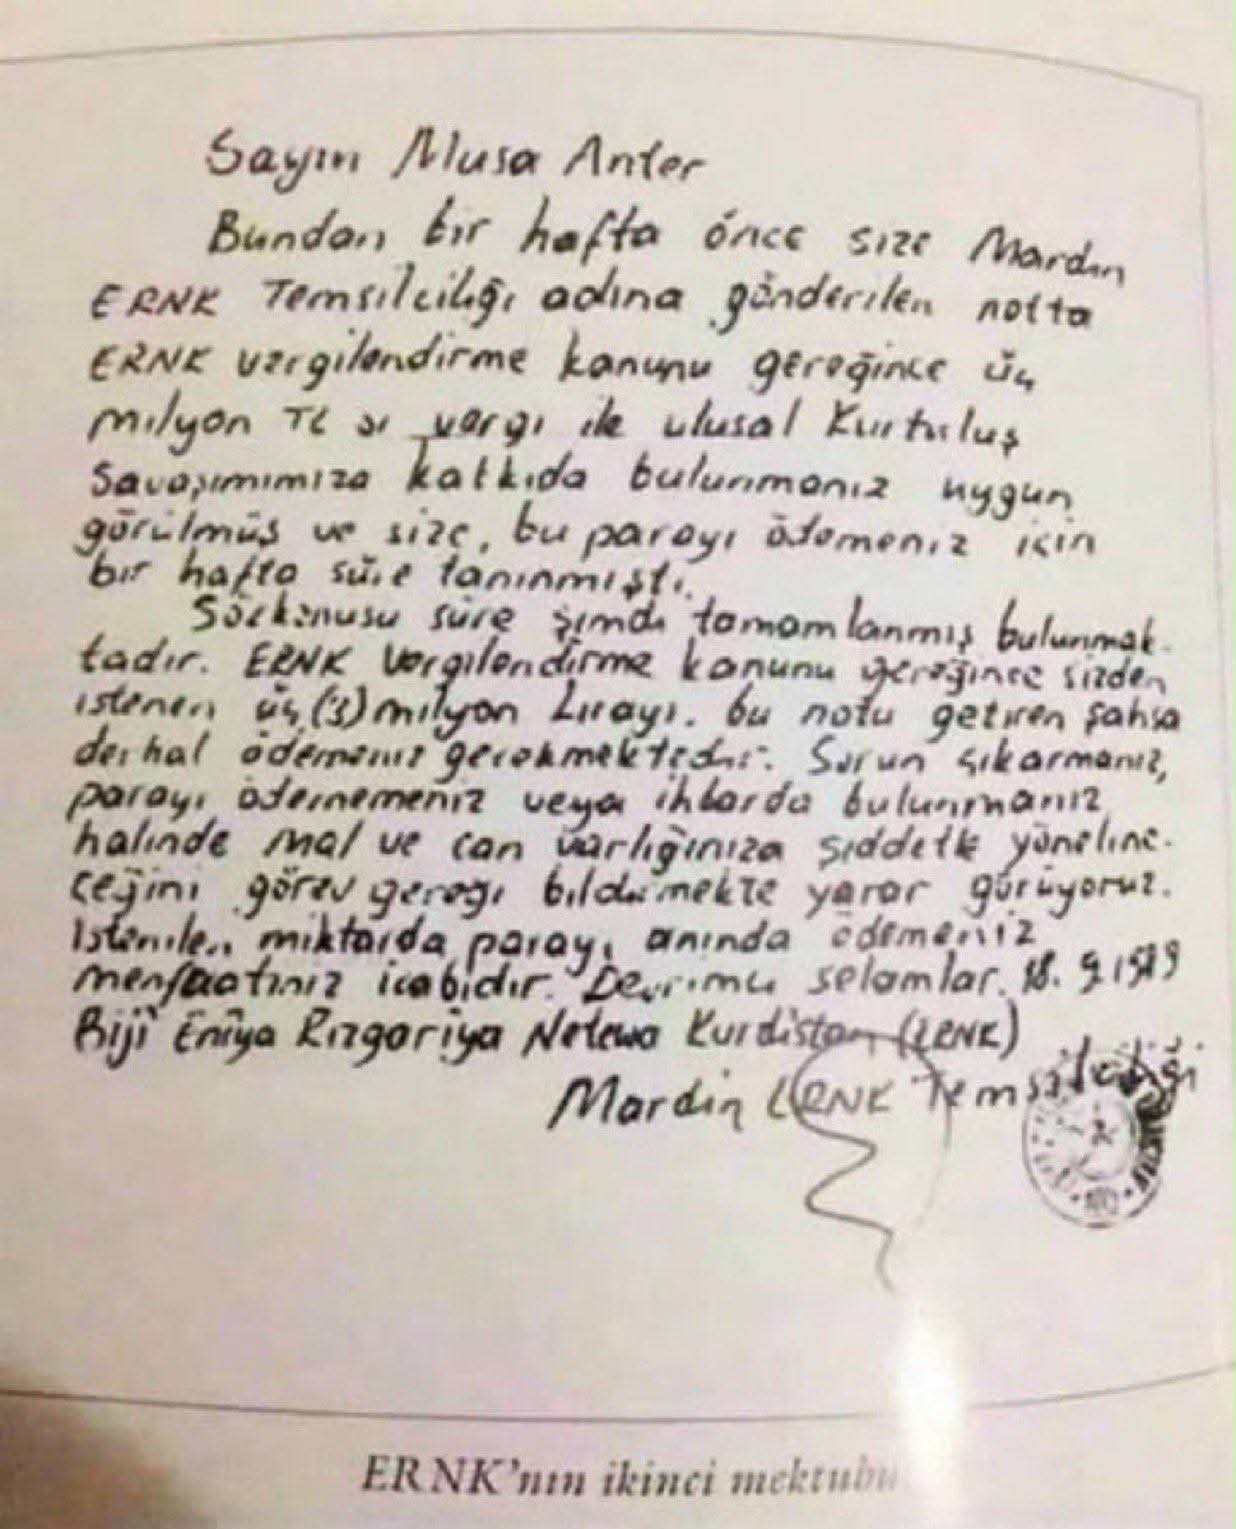 Sayın Musa Anter
Bundan bir hafta önce size Mardin
ERNK Temsilciliği adına gönderilen notta
ERNK vergilendirme kanunu gereğince üç
milyon TL sı vergi ile ulusal Kurtuluş
Savaşımımıza katkıda bulunmanız uygun
görülmüş ve size, bu parayı ödemeniz için
bir hafta süre tanınmıştı.
Sözkonusu süre şimdi tamamlanmış bulunmak-
tadır. ERNK Vergilendirme kanunu gereğince sizden
istenen üç (3) milyon Lirayı. bu notu getiren şahsa
derhal ödemeniz gerekmektedir. Sorun çıkarmanız,
parayı ödememeniz veya ihbarda bulunmanız
halinde mal ve can varlığınıza şiddetle yöneline-
ceğini görev gereği bildirmekte yarar görüyoruz.
İstenilen miktarda parayı anında ödemeniz
menfaatiniz icabıdır. Devrimci selamlar. 18. 9. 1989
Biji Enîya Rızgariya Netewa Kurdistan (ERNK)
Mardin ERNK Temsilciliği
ERNK'nın ikinci mektubu